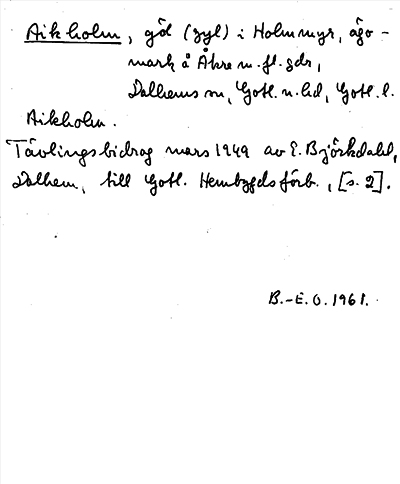 Aikholm, göl (gyl) i Holmmyr, ägo-
mark å Åkre m. fl. gdr,
Dalhems sn, Gotl. n. hd, Gotl. l.
Aikholm.
Tävlingsbidrag mars 1949 av E. Björkdahl,
Dalhem, till Gotl. Hembygdsförb., [s. 2].
B.-E. O. 1961.